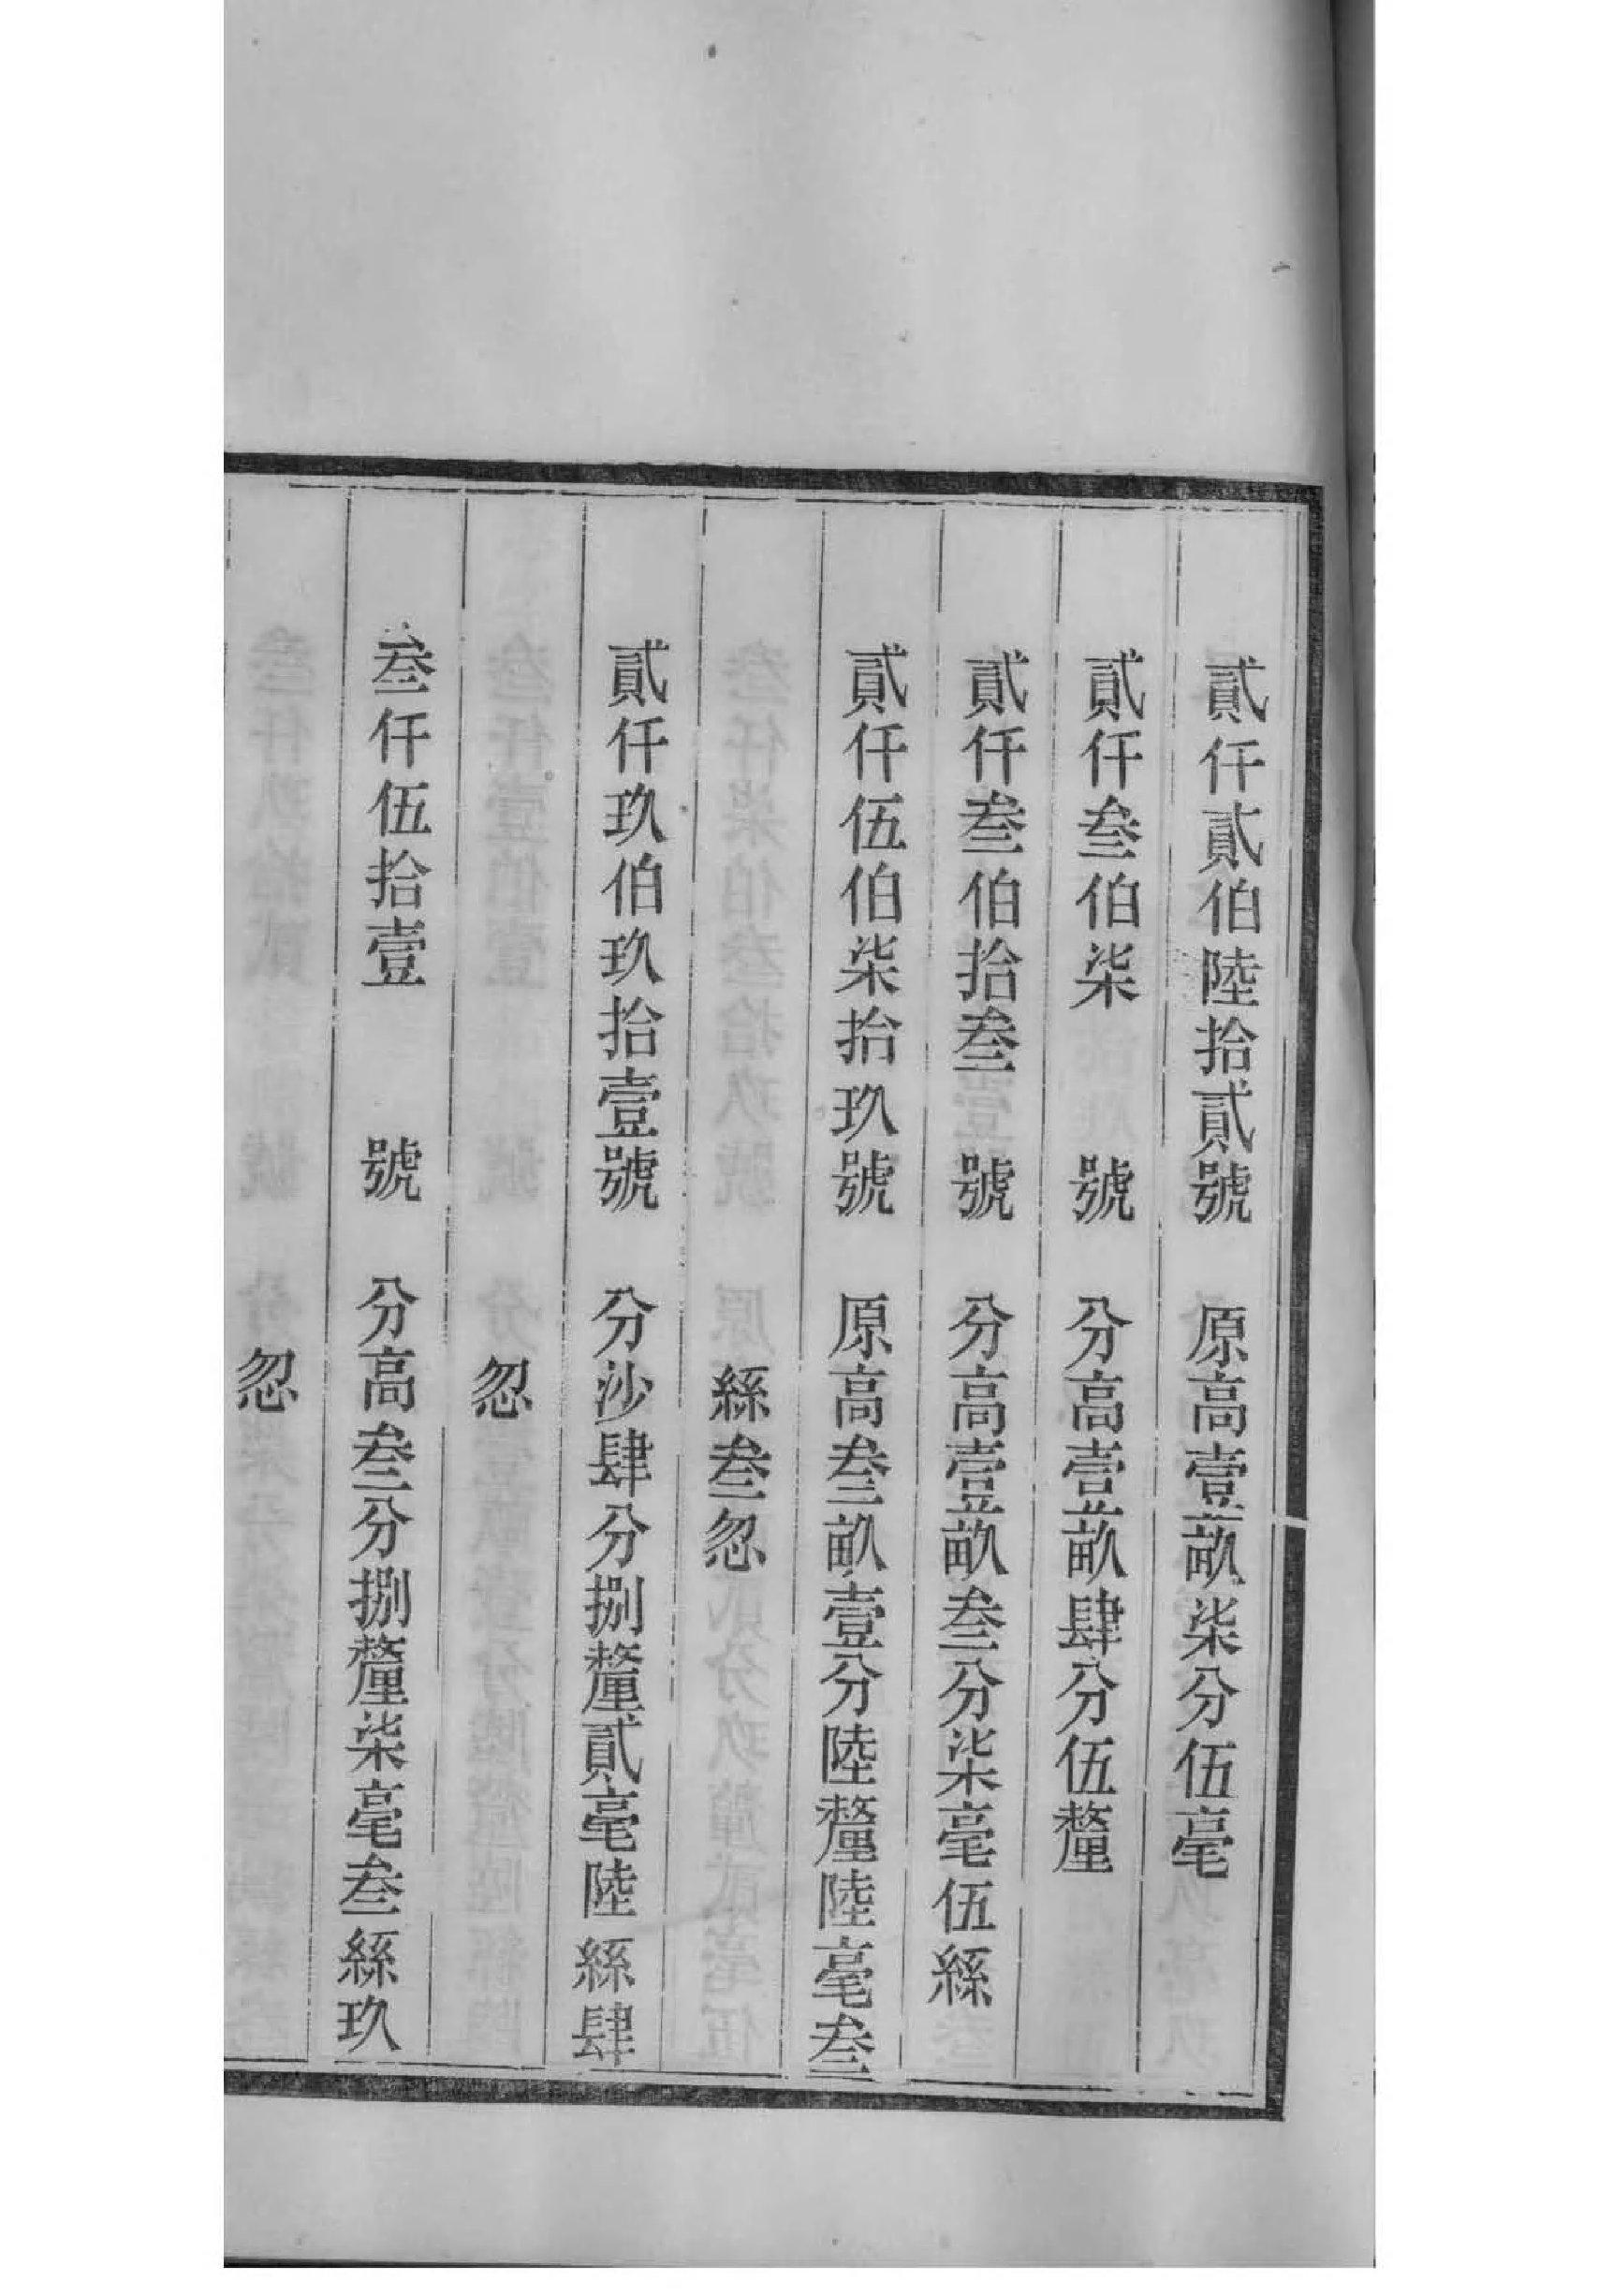 貳仟貳伯陸拾貳號　原高壹畝柒分伍毫
貳仟叁伯柒　號　分高壹畝肆分伍釐
貳仟叁伯拾叁　號　分高壹畝叁分柒毫伍絲
貳仟伍伯柒拾玖號　原高叁畝壹分陸釐陸毫叁
絲叁忽
貳仟玖伯玖拾壹號　分沙肆分捌釐貳毫陸絲肆
忽
叁仟伍拾壹　號　分高叁分捌釐柒毫叁絲玖
忽